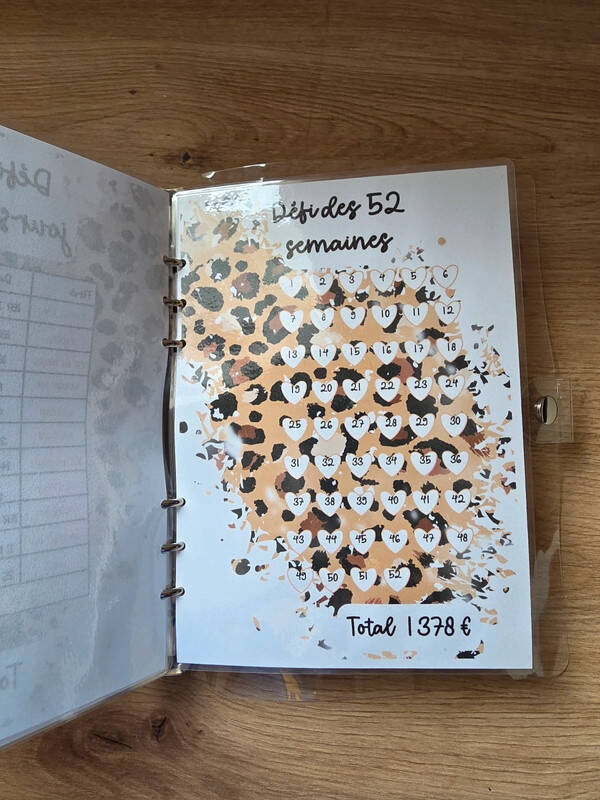 Défi des 52
semaines
1 2 3 4 5 6
7 8 9 10 11 12
13 14 15 16 17 18
19 20 21 22 23 24
25 26 27 28 29 30
31 32 33 34 35 36
37 38 39 40 41 42
43 44 45 46 47 48
49 50 51 52
Total 1378 €